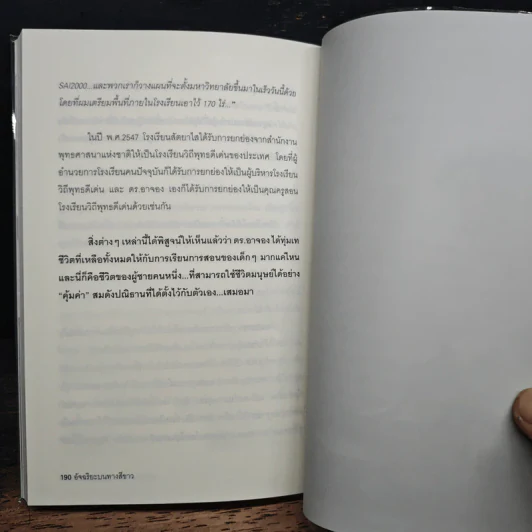 SAI2000...และพวกเราก็วางแผนที่จะตั้งมหาวิทยาลัยขึ้นมาในเร็ววันนี้ด้วย
โดยที่ผมเตรียมพื้นที่ภายในโรงเรียนเอาไว้ 170 ไร่..."
ในปี พ.ศ.2547 โรงเรียนสัตยาไสได้รับการยกย่องจากสำนักงาน
พุทธศาสนาแห่งชาติให้เป็นโรงเรียนวิถีพุทธดีเด่นของประเทศ โดยที่ผู้
อำนวยการโรงเรียนคนปัจจุบันก็ได้รับการยกย่องให้เป็นผู้บริหารโรงเรียน
วิถีพุทธดีเด่น และ ดร.อาจอง เองก็ได้รับการยกย่องให้เป็นคุณครูสอน
โรงเรียนวิถีพุทธดีเด่นด้วยเช่นกัน
สิ่งต่างๆ เหล่านี้ได้พิสูจน์ให้เห็นแล้วว่า ดร.อาจอง ได้ทุ่มเท
ชีวิตที่เหลือทั้งหมดให้กับการเรียนการสอนของเด็กๆ มากแค่ไหน
และนี่ก็คือชีวิตของผู้ชายคนหนึ่ง...ที่สามารถใช้ชีวิตมนุษย์ได้อย่าง
"คุ้มค่า" สมดังปณิธานที่ได้ตั้งไว้กับตัวเอง...เสมอมา
190 อัจฉริยะบนทางสีขาว